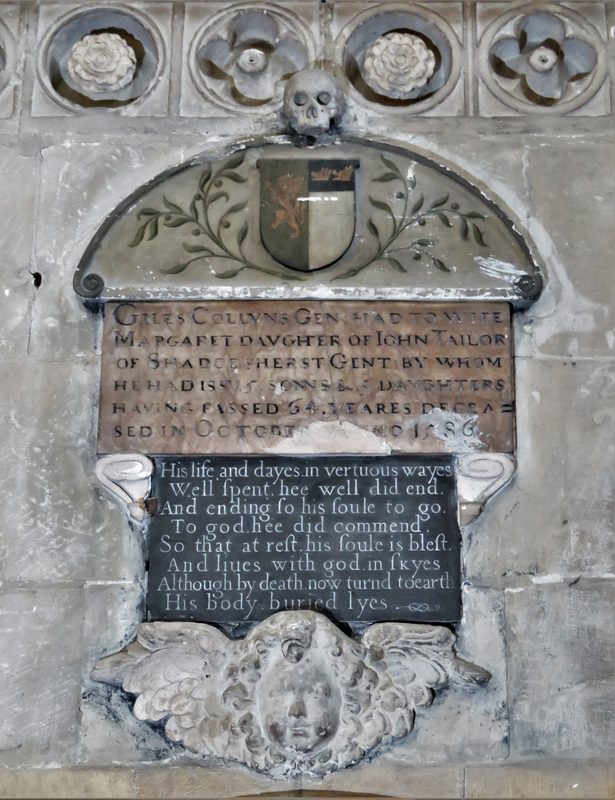 GILES COLLYNS GEN: HAD TO WIFE
MARGARET DAVGHTER OF IOHN TAILOR
OF HERST GENT: BY WHOM
HE HAD SONNS & 5 DAVGHTERS
HAVING PASSED 64. YEARES DECEA=
SED IN 1586
His life and dayes, in vertuous wayes
Well ſpent, hee well did end.
And ending ſo his ſoule to go.
To god, hee did commend.
So that at reſt, his ſoule is bleſt.
And liues with god, in ſkyes
Although by death, now turnd to earth
His body, buried lyes